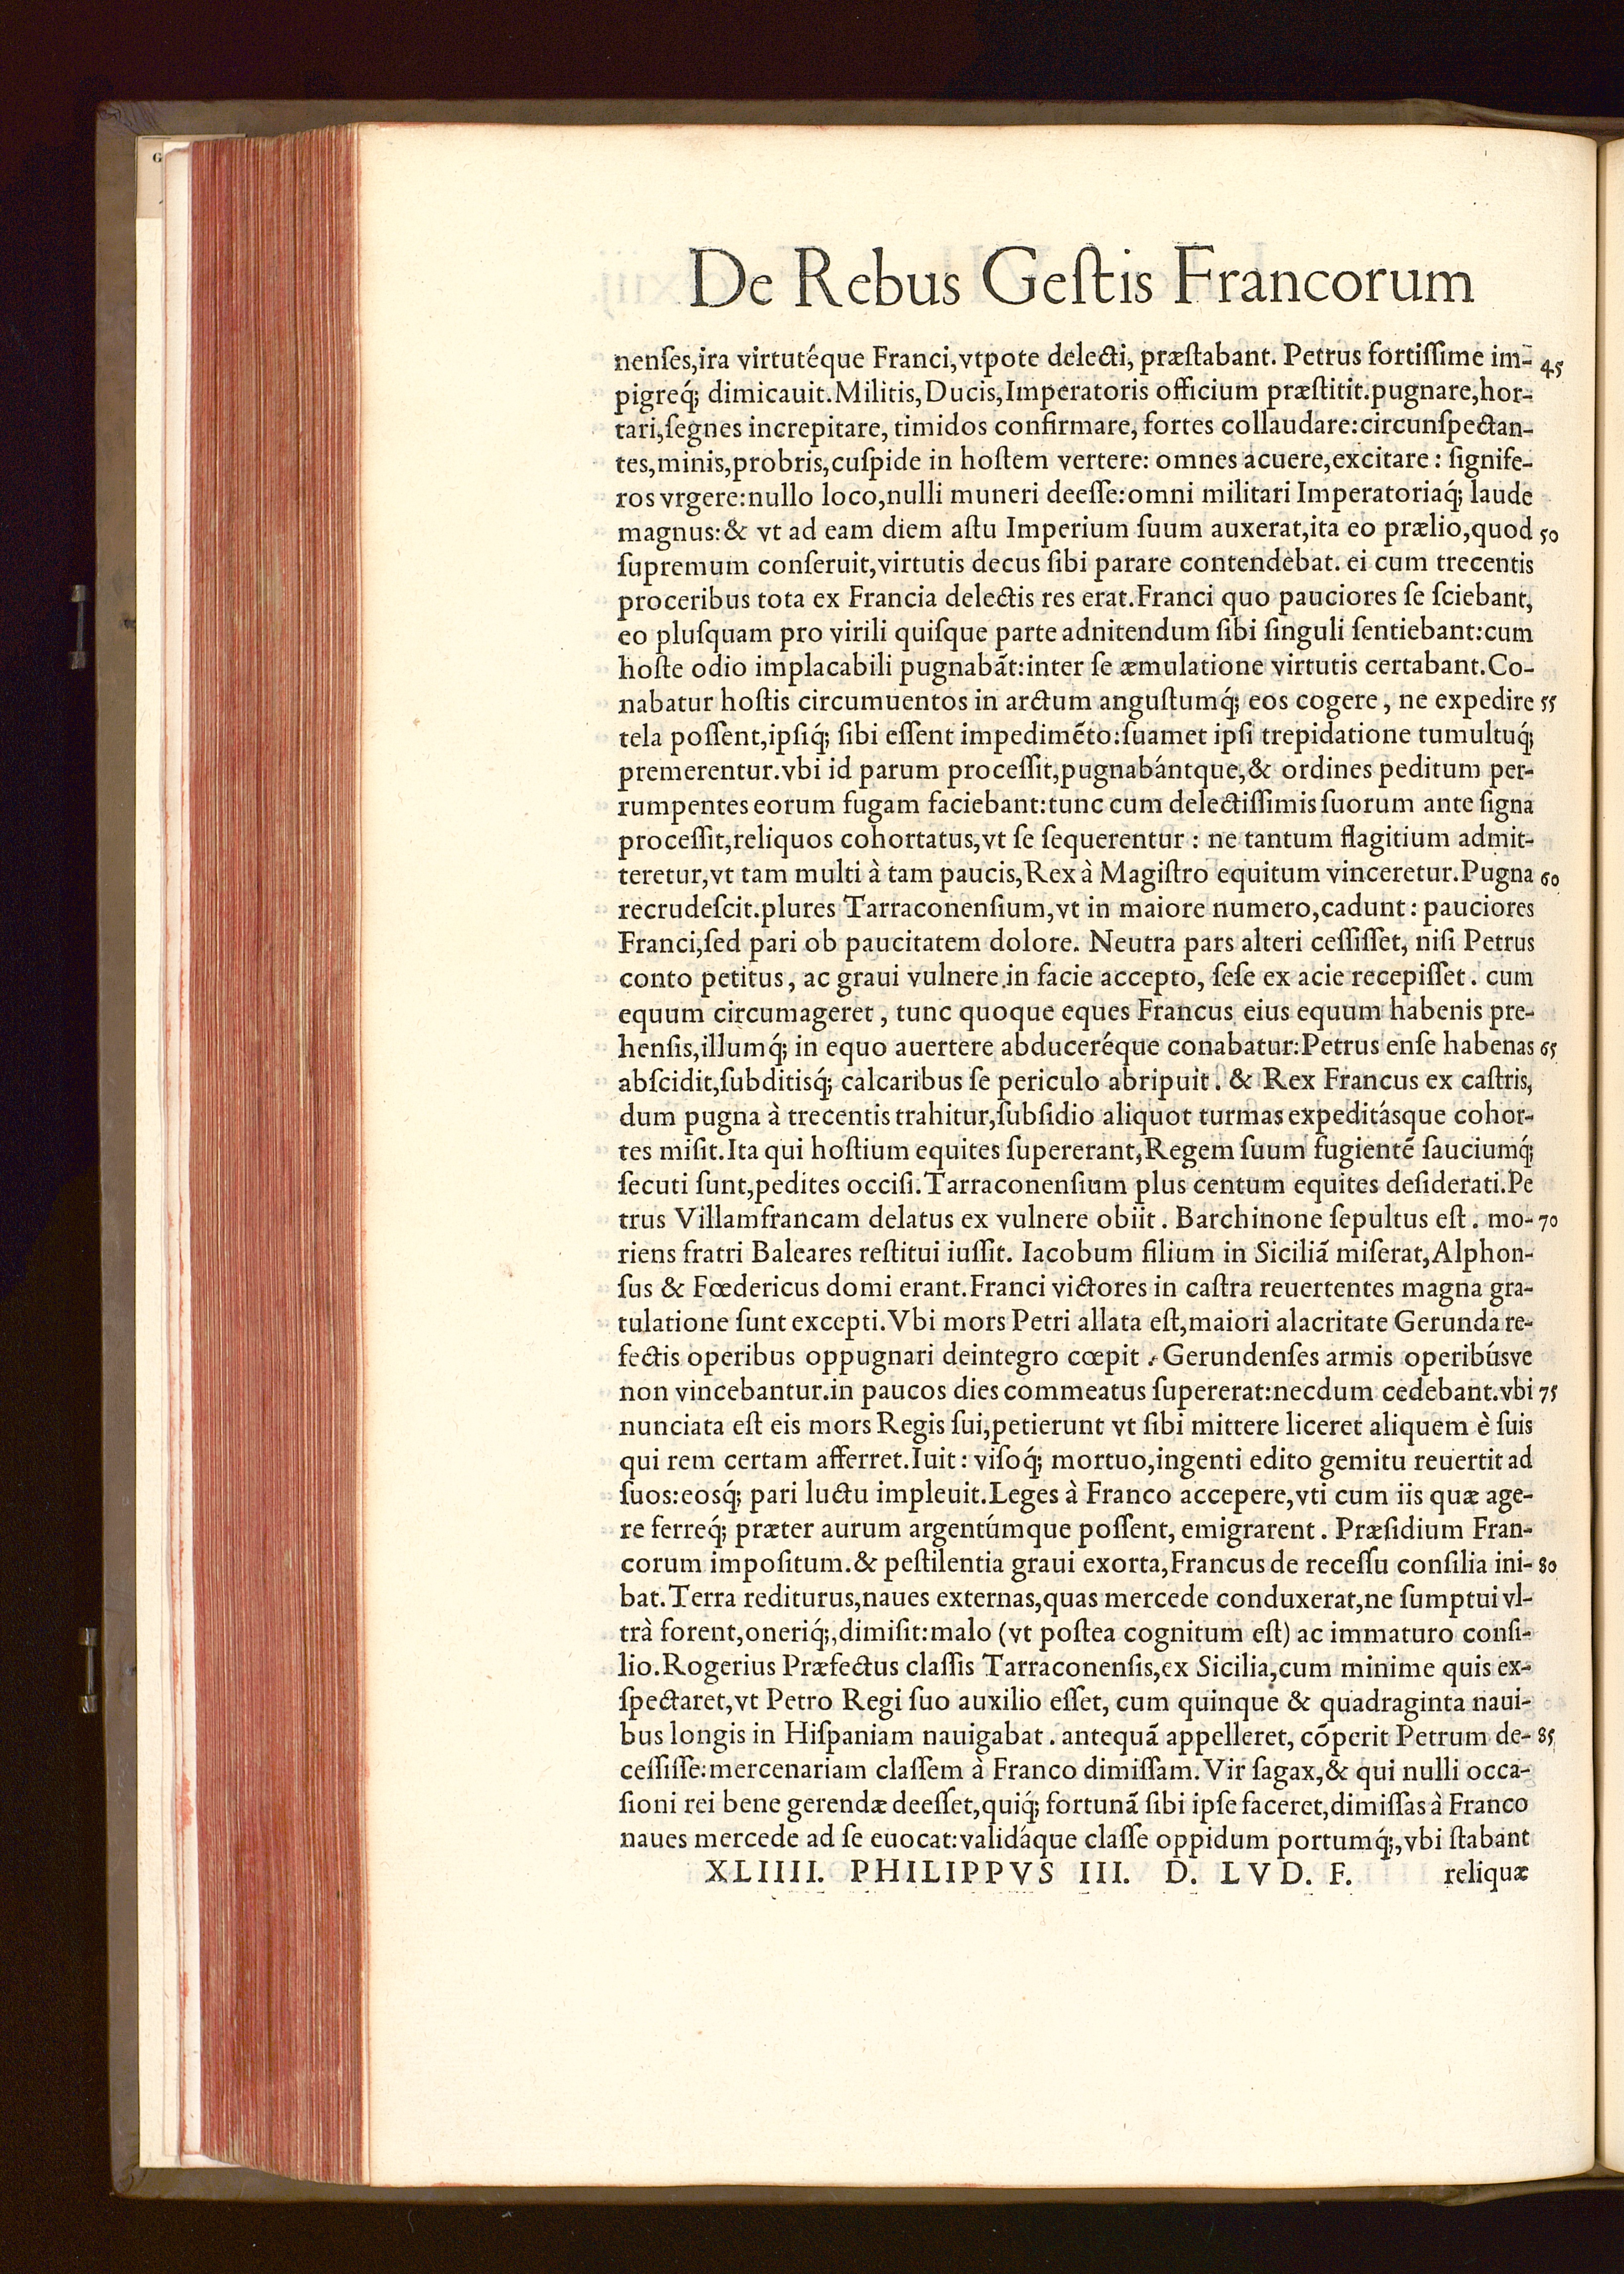 De Rebus Geſtis Francorum
nenſes,ira virtutéque Franci,vtpote delecti, præſtabant. Petrus fortiſſime im- 45
pigreq́; dimicauit.Militis,Ducis,Imperatoris officium præſtitit.pugnare,hor-
tari,ſegnes increpitare, timidos confirmare, fortes collaudare:circunſpectan-
tes,minis,probris,cuſpide in hoſtem vertere: omnes acuere,excitare : ſignife-
ros vrgere:nullo loco,nulli muneri deeſſe:omni militari Imperatoriaq́; laude
magnus:& vt ad eam diem aſtu Imperium ſuum auxerat,ita eo prælio,quod 50
ſupremum conſeruit,virtutis decus ſibi parare contendebat. ei cum trecentis
proceribus tota ex Francia delectis res erat.Franci quo pauciores ſe ſciebant,
eo pluſquam pro virili quiſque parte adnitendum ſibi ſinguli ſentiebant:cum
hoſte odio implacabili pugnabãt:inter ſe æmulatione virtutis certabant.Co-
nabatur hoſtis circumuentos in arctum anguſtumq́; eos cogere, ne expedire 55
tela poſſent,ipſiq́; ſibi eſſent impedimẽto:ſuamet ipſi trepidatione tumultuq́;
premerentur.vbi id parum proceſſit,pugnabántque,& ordines peditum per-
rumpentes eorum fugam faciebant:tunc cum delectiſſimis ſuorum ante ſigna
proceſſit,reliquos cohortatus,vt ſe ſequerentur : ne tantum flagitium admit-
teretur,vt tam multi à tam paucis,Rex à Magiſtro equitum vinceretur.Pugna 60
recrudeſcit.plures Tarraconenſium,vt in maiore numero,cadunt : pauciores
Franci,ſed pari ob paucitatem dolore. Neutra pars alteri ceſſiſſet, niſi Petrus
conto petitus, ac graui vulnere in facie accepto, ſeſe ex acie recepiſſet. cum
equum circumageret, tunc quoque eques Francus eius equum habenis pre-
henſis,illumq́; in equo auertere abduceréque conabatur:Petrus enſe habenas 65
abſcidit,ſubditiſq́; calcaribus ſe periculo abripuit. & Rex Francus ex caſtris,
dum pugna à trecentis trahitur,ſubſidio aliquot turmas expeditáſque cohor-
tes miſit.Ita qui hoſtium equites ſupererant,Regem ſuum fugientẽ ſauciumq́;
ſecuti ſunt,pedites occiſi.Tarraconenſium plus centum equites deſiderati.Pe
trus Villamfrancam delatus ex vulnere obiit. Barchinone ſepultus eſt. mo- 70
riens fratri Baleares reſtitui iuſſit. Iacobum filium in Siciliã miſerat,Alphon-
ſus & Fœdericus domi erant.Franci victores in caſtra reuertentes magna gra-
tulatione ſunt excepti.Vbi mors Petri allata eſt,maiori alacritate Gerunda re-
fectis operibus oppugnari deintegro cœpit. Gerundenſes armis operibúsve
non vincebantur.in paucos dies commeatus ſupererat:necdum cedebant.vbi 75
nunciata eſt eis mors Regis ſui,petierunt vt ſibi mittere liceret aliquem è ſuis
qui rem certam afferret.Iuit : viſoq́; mortuo,ingenti edito gemitu reuertit ad
ſuos:eoſq́; pari luctu impleuit.Leges à Franco accepere,vti cum iis quæ age-
re ferreq́; præter aurum argentúmque poſſent, emigrarent. Præſidium Fran-
corum impoſitum.& peſtilentia graui exorta,Francus de receſſu conſilia ini- 80
bat.Terra rediturus,naues externas,quas mercede conduxerat,ne ſumptui vl-
trà forent,oneriq́;,dimiſit:malo (vt poſtea cognitum eſt) ac immaturo conſi-
lio.Rogerius Præfectus claſſis Tarraconenſis,ex Sicilia,cum minime quis ex-
ſpectaret,vt Petro Regi ſuo auxilio eſſet, cum quinque & quadraginta naui-
bus longis in Hiſpaniam nauigabat. antequã appelleret, cõperit Petrum de- 85
ceſſiſſe:mercenariam claſſem à Franco dimiſſam.Vir ſagax,& qui nulli occa-
ſioni rei bene gerendæ deeſſet,quiq́; fortunã ſibi ipſe faceret,dimiſſas à Franco
naues mercede ad ſe euocat:validáque claſſe oppidum portumq́;,vbi ſtabant
XLIIII. PHILIPPVS III. D. LVD. F. reliquæ
G